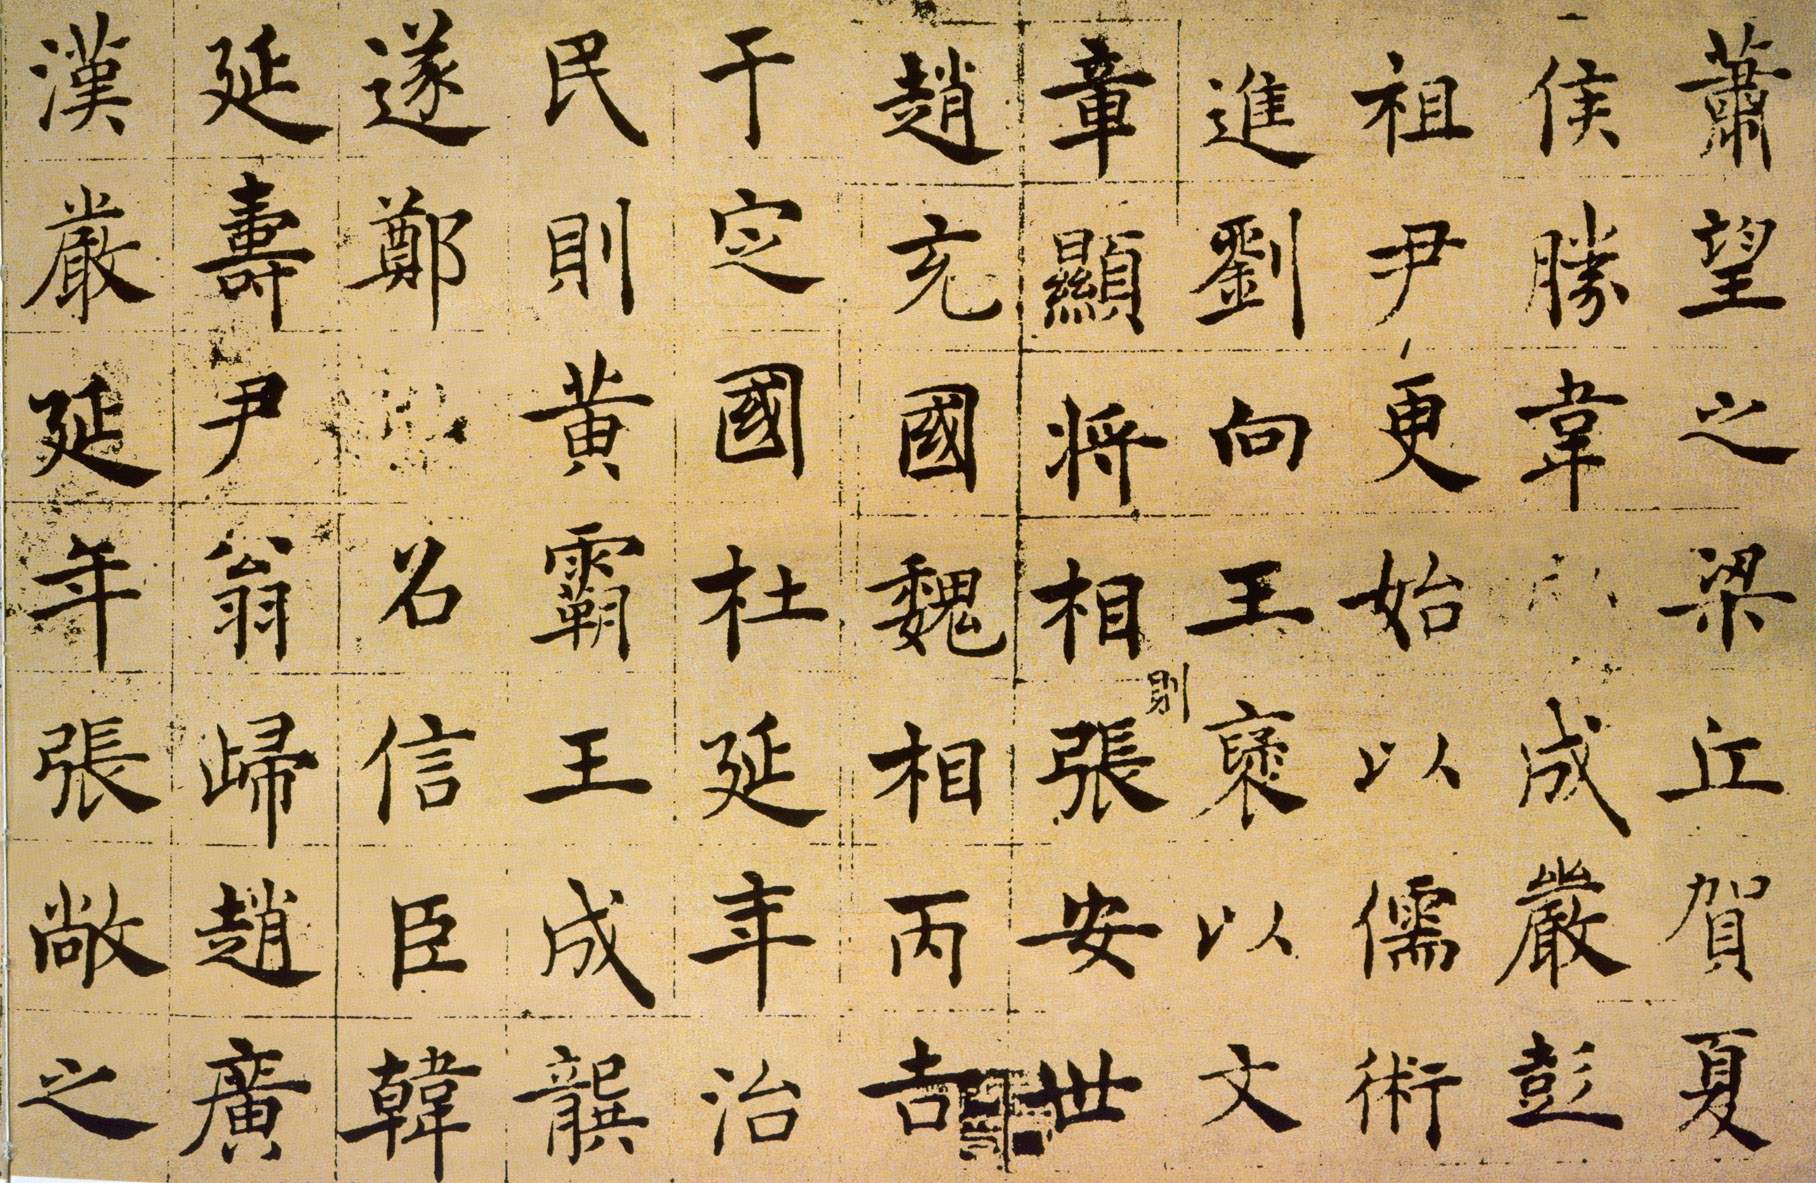 蕭望之梁丘賀夏
侯勝韋成嚴彭
祖尹更始以儒術
進劉向王褒以文
章顯將相則張安世
趙充國魏相丙吉
于定國杜延年治
民則黃霸王成龔
遂鄭名信臣韓
延壽尹翁歸趙廣
漢嚴延年張敞之